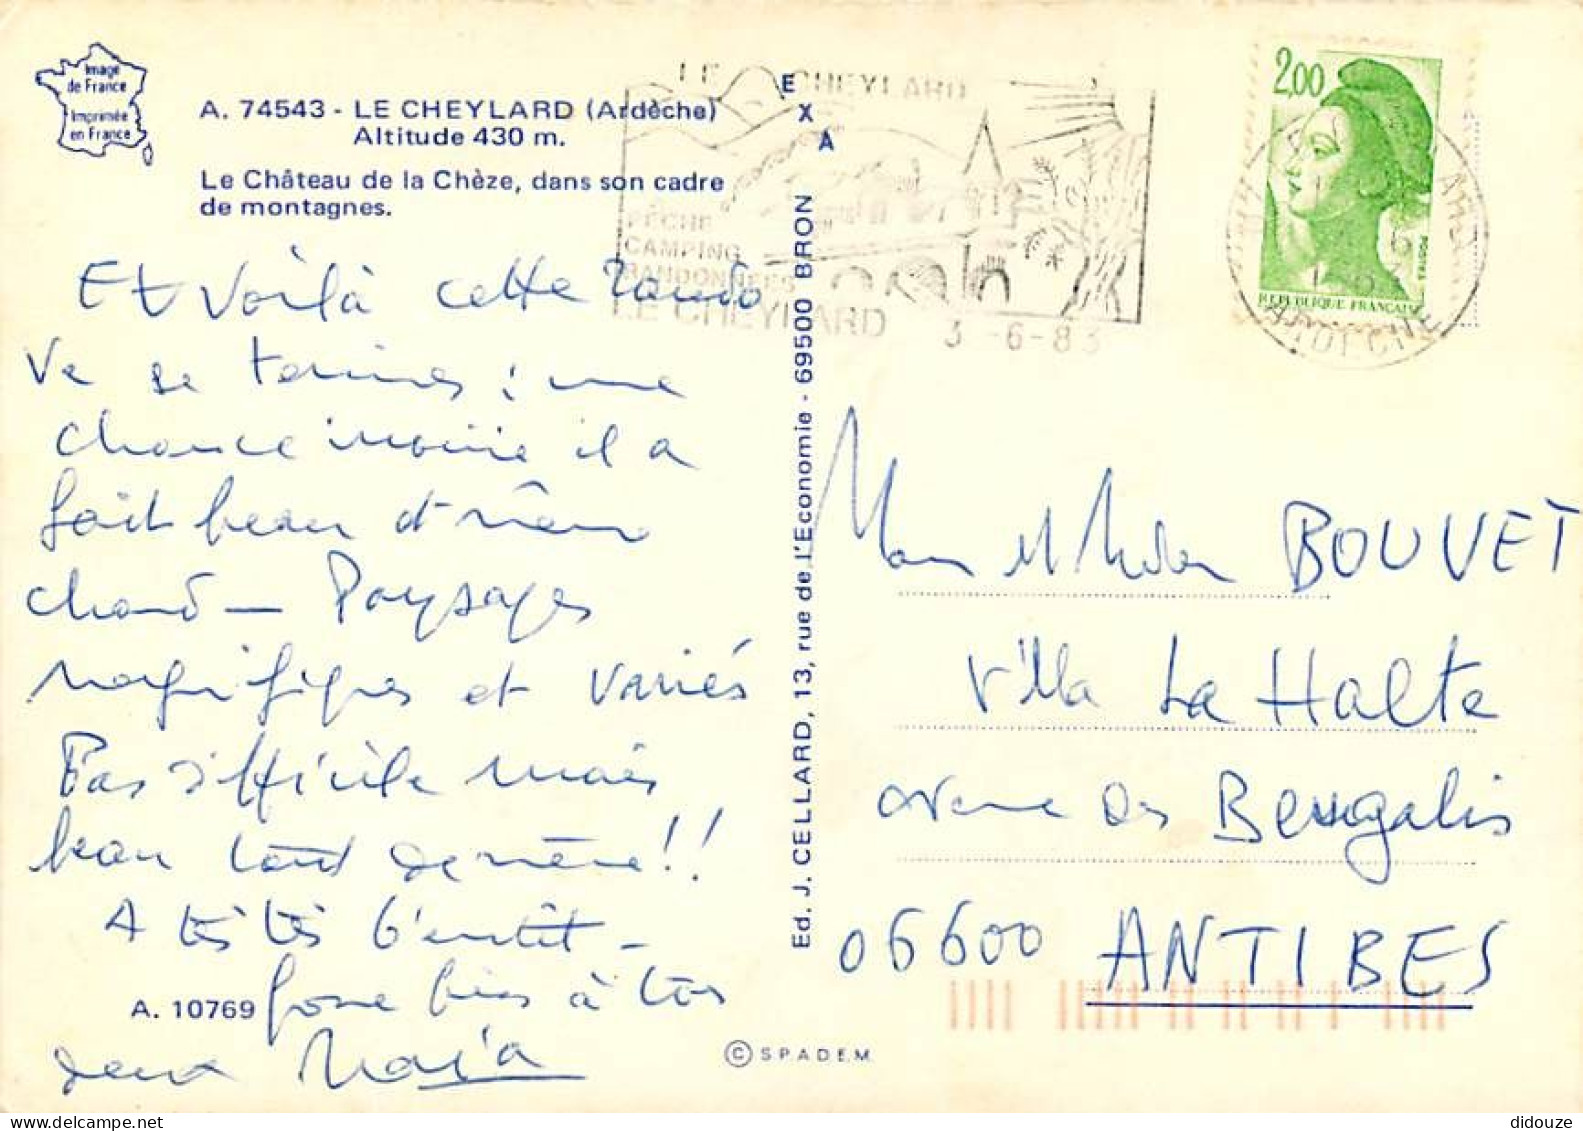 Image
de France
Imprimée
en France
A. 74543 - LE CHEYLARD (Ardèche)
Altitude 430 m.
Le Château de la Chèze, dans son cadre
de montagnes.
LE CHEYLARD
PÊCHE
CAMPING
RANDONNÉES
LE CHEYLARD 3 -6-83
2,00
POSTES
REPUBLIQUE FRANÇAISE
ARDECHE
Et voilà cette rando
va se terminer : une
chance inouïe il a
fait beau et même
chaud - Paysages
magnifiques et variés
Pas difficile mais
beau tout de même !!
A très très bientôt -
Grosse bise à tous
deux Maria
A. 10769
EXA
Ed. J. CELLARD, 13, rue de l'Economie - 69500 BRON
© SPADEM
et BOUVET
Villa La Halte
avenue des
06600 ANTIBES
didouze